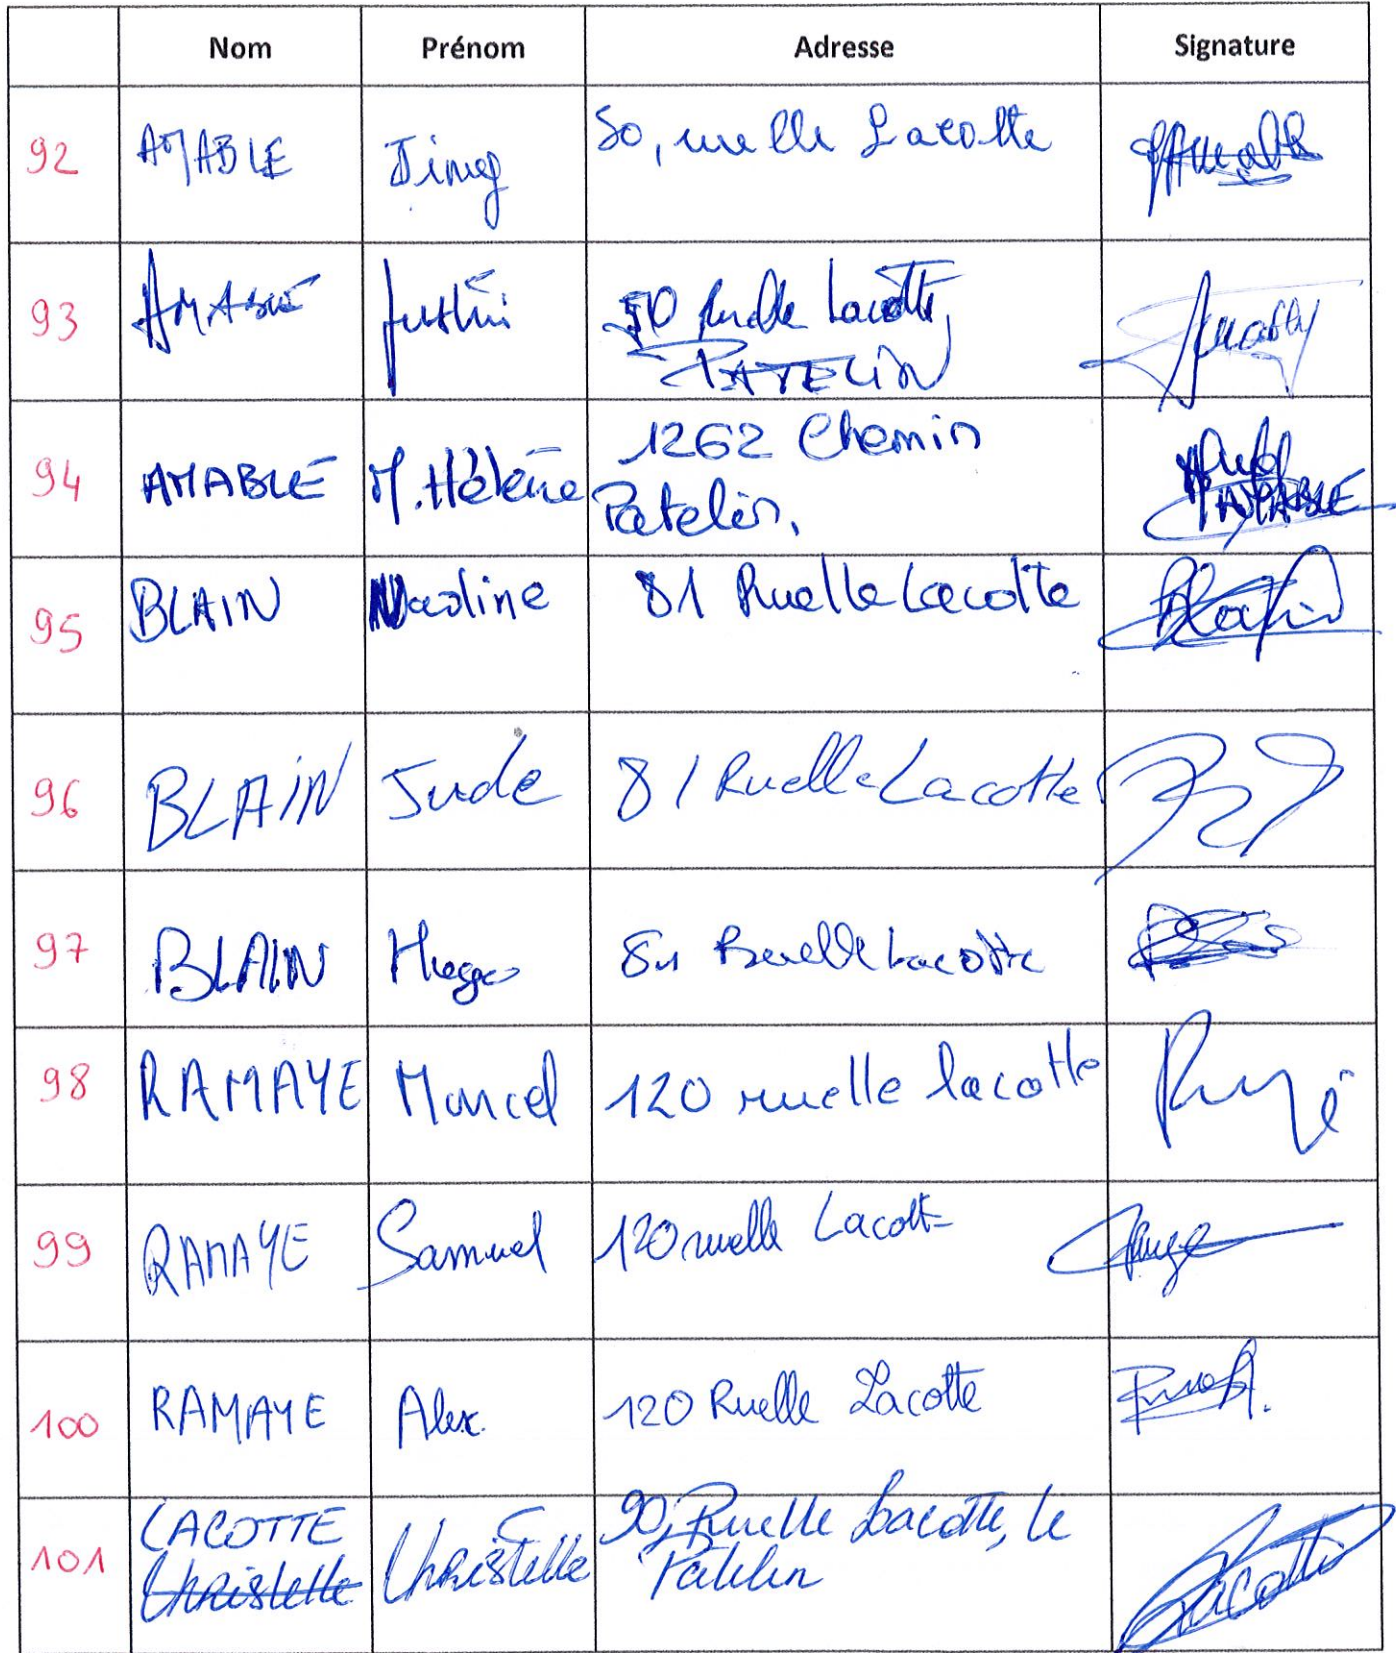 Nom Prénom Adresse Signature
92 AMABLE Jimmy 50, ruelle Lacotte
93 AMABLE Justin 50 Ruelle Lacotte,
PATELIN
94 AMABLE M.Hélène 1262 Chemin
Patelin.
95 BLAIN Nadine 81 Ruelle Lacotte
96 BLAIN Jude 81 Ruelle Lacotte
97 BLAIN Hugo 81 Ruelle Lacotte
98 RAMAYE Marcel 120 ruelle lacotte
99 RAMAYE Samuel 120 ruelle Lacotte
100 RAMAYE Alex. 120 Ruelle Lacotte
101 LACOTTE Christelle 90, Ruelle Lacotte, le
Christelle Patelin